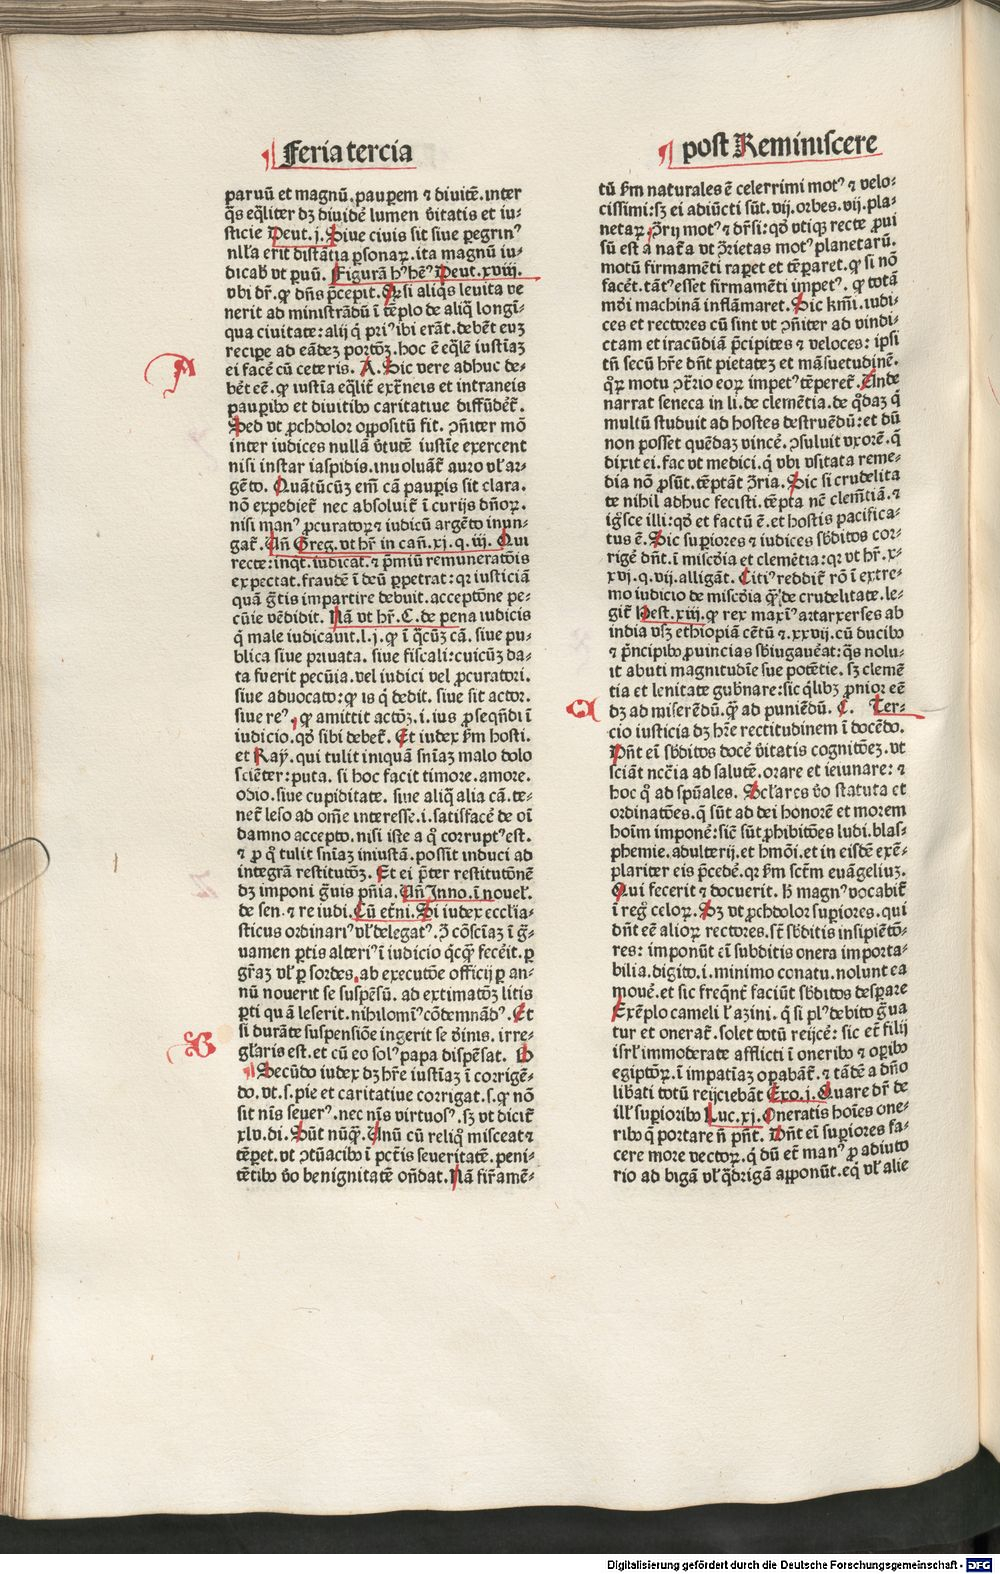 Feria tercia
post Reminiscere
paruū et magnū. paupem ⁊ diuitē. inter
q̄s eq̄liter dꝫ diuidē lumen v̄itatis et iu-
sticie Deut. j. Siue ciuis sit siue pegrinꝰ
nll'a erit distātia psonaꝝ. ita magnū iu-
dicab̄ vt puū. Figurā hꝰ hēꝰ Deut. xviij.
vbi dr̄. ꝙ dn̄s p̄cepit. Qꝛ si aliq̄s leuita ve
nerit ad ministrādū ī tēplo de aliq̄ longī-
qua ciuitate: alij q̄ priꝰ ibi erāt. debēt euꝫ
recipe ad eādeꝫ portōꝫ. hoc ē eq̄lē iustiaꝫ
ei facē cū ceteris. A. Sic vere adhuc de-
bēt eē. ꝙ iustia eq̄lit̄ ext̄neis et intraneis
paupibꝰ et diuitibꝰ caritatiue diffūdēt̄.
Sed vt ꝓchdolor oppositū fit. ꝯn̄iter mō
inter iudices nullā v̄tutē iustie exercent
nisi instar iaspidis. inuoluāt̄ auro vl' ar-
gēto. Quātūcūꝫ em̄ cā paupis sit clara.
nō expediet̄ nec absoluit̄ ī curijs dn̄oꝝ.
nisi manꝰ ꝓcuratoꝝ ⁊ iudicū argēto inun-
gat̄. Un̄ Greg. vt hr̄ in can̄. xj. q. iij. Qui
recte: inqt. iudicat. ⁊ p̄miū remuneratōis
expectat. fraudē ī deū ppetrat: qꝛ iusticiā
quā ḡtis impartire debuit. acceptōne pe-
cūie vēdidit. Nā vt hr̄. C. de pena iudicis
q̄ male iudicauit. l. j. ꝙ ī q̄cūꝫ cā. siue pu-
blica siue priuata. siue fiscali: cuicūꝫ da-
ta fuerit pecūia. vel iudici vel ꝓcuratori.
siue aduocato: ꝙ is q̄ dedit. siue sit actor.
siue reꝰ, ꝙ amittit actōꝫ. i. ius ꝓseqn̄di ī
iudicio. qd̄ sibi debet̄. Et iudex fm̄ hosti.
et Raÿ. qui tulit iniquā sn̄iaꝫ malo dolo
sciēter: puta. si hoc facit timore. amore.
odio. siue cupiditate. siue aliq̄ alia cā. te-
net̄ leso ad om̄e interesse. i. satisfacē de oī
damno accepto. nisi iste a q̄ corruptꝰ est.
⁊ p q̄ tulit sn̄iaꝫ iniustā. possīt induci ad
integrā restitutōꝫ. Et ei p̄ter restitutōnē
dꝫ imponi ḡuis pn̄ia. Un̄ Inno. ī nouel'.
de sen. ⁊ re iudi. Cū et̄ni. Si iudex eccl'ia-
sticus ordinariꝰ vl' delegatꝰ. ꝯ̄ cōsciaꝫ ī ḡ-
uamen ptis alteriꝰ ī iudicio q̄cq̄ fecēit. p
gr̄aꝫ vl' p sordes. ab executōe officij p an-
nū nouerit se suspēsū. ad extimatōꝫ litis
pti quā leserit. nihilominꝰ cōtemnādꝰ. Et
si durāte suspensiōe ingerit se diuinis. irre-
gl'aris est. et cū eo solꝰ papa dispēsat. B
Secūdo iudex dꝫ hr̄e iustiaꝫ ī corrigē-
do. vt. s. pie et caritatiue corrigat. s. ꝙ nō
sit nīs seuerꝰ. nec nīs virtuosꝰ. sꝫ vt dicit̄
xlv. di. Sūt nūq̄. Unū cū reliq̄ misceat ⁊
tēperet. vt ꝯtūacibꝰ ī pctīs seueritatē. peni-
tētibꝰ v̄o benignitatē on̄dat. Nā firmamē-
tū fm̄ naturales ē celerrimi motꝰ ⁊ velo-
cissimi: sꝫ ei adiūcti sūt. vij. orbes. vij. pla-
netaꝝ. ꝯ̄rij motꝰ ⁊ dr̄si: qd̄ vtiqꝫ recte ꝓui
sū est a nat̄a vt ꝯ̄rietas motꝰ planetarū.
motū firmamēti rapet et tēparet. ꝙ si nō
facēt. tātꝰ esset firmamēti impetꝰ. ꝙ totā
mūdi machinā inflāmaret. Sic km̄i. iudi-
ces et rectores cū sint vt ꝯn̄iter ad vindi-
ctam et iracūdiā p̄cipites ⁊ veloces: ipsi
tn̄ secū hr̄e dn̄t pietateꝫ et māsuetudinē.
q̄ꝝ motu ꝯt̄rio eoꝝ impetꝰ tēperet̄. Unde
narrat seneca in li. de clemētia. de q̄daꝫ q̄
multū studuit ad hostes destruēdū: et dū
non posset quēdaꝫ vincē. ꝯsuluit vxorē. q̄
dixit ei. fac vt medici. q̄ vbi vsitata reme-
dia nō ꝓsūt. tēptāt ꝯ̄ria. Sic si crudelita
te nihil adhuc fecisti. tēpta nūc clemētiā. ⁊
ig̅sce illi: qd̄ et factū ē. et hostis pacifica-
tus ē. Sic supiores ⁊ iudices sbditos cor-
rigē dn̄t. ī misc̄dia et clemētia: qꝛ vt hr̄. x-
xvj. q. vij. alligāt. Citiꝰ reddit̄ rō ī extre-
mo iudicio de misc̄dia q̄ꝫ de crudelitate. le-
git̄ Hest. xiij. ꝙ rex maxiꝰ artarxerses ab
india vsꝫ ethiopiā cētū ⁊. xxvij. cū ducibꝰ
et p̄ncipibꝰ ꝓuincias sbiugauēat: q̄s nolu-
it abuti magnitudīe sue potētie. sꝫ clemē
tia et lenitate gub̄nare: sic q̄libꝫ ꝓnior eē
dꝫ ad miserēdū. q̄ꝫ ad puniēdū. C. Ter-
cio iusticia dꝫ hr̄e rectitudinem ī docēdo.
Dn̄t ei sbditos docē v̄itatis cognitōeꝫ. vt
sciāt nccīa ad salutē. orare et ieiunare: ⁊
hoc q̄ ad spn̄ales. Scl'ares v̄o statuta et
ordinatōes. q̄ sūt ad dei honorē et morem
hoīm imponē: sic̄ sūt ꝓhibitōes ludi. blas-
phemie. adulterij. et hmōi. et in eisdē exē-
plariter eis p̄cedē. qꝛ fm̄ sct̄m euāgeliuꝫ.
Qui fecerit ⁊ docuerit. h̄ magnꝰ vocabit̄
ī regꝰ celoꝝ. Sꝫ vt ꝓchdolor supiores. qui
dn̄t eē alioꝝ rectores. sūt sbditis insipiētō-
res: imponūt ei subditis onera importa-
bilia. digito. i. minimo conatu. nolunt ea
mouē. et sic freqn̄t̄ faciūt sbditos despare
Exēplo cameli l' azini. q̄ si plꝰ debito ḡua
tur et onerat̄. solet totū reijcē: sic et̄ filij
isrl' immoderate afflicti ī oneribꝰ ⁊ opibꝰ
egiptoꝝ. ī impatiaꝫ opabāt̄. ⁊ tādē a dn̄o
libati totū reijciebāt Exo. j. Quare dr̄ de
ill' supioribꝰ Luc. xj. Oneratis hoīes one-
ribꝰ q̄ portare n̄ pn̄t. Dn̄t ei supiores fa-
cere more vectoꝝ. q̄ dū et̄ manꝰ ꝓ adiuto
rio ad bigā vl' q̄drigā apponūt. eq̄ vl' alie
A
B
C
Digitalisierung gefördert durch die Deutsche Forschungsgemeinschaft - DFG